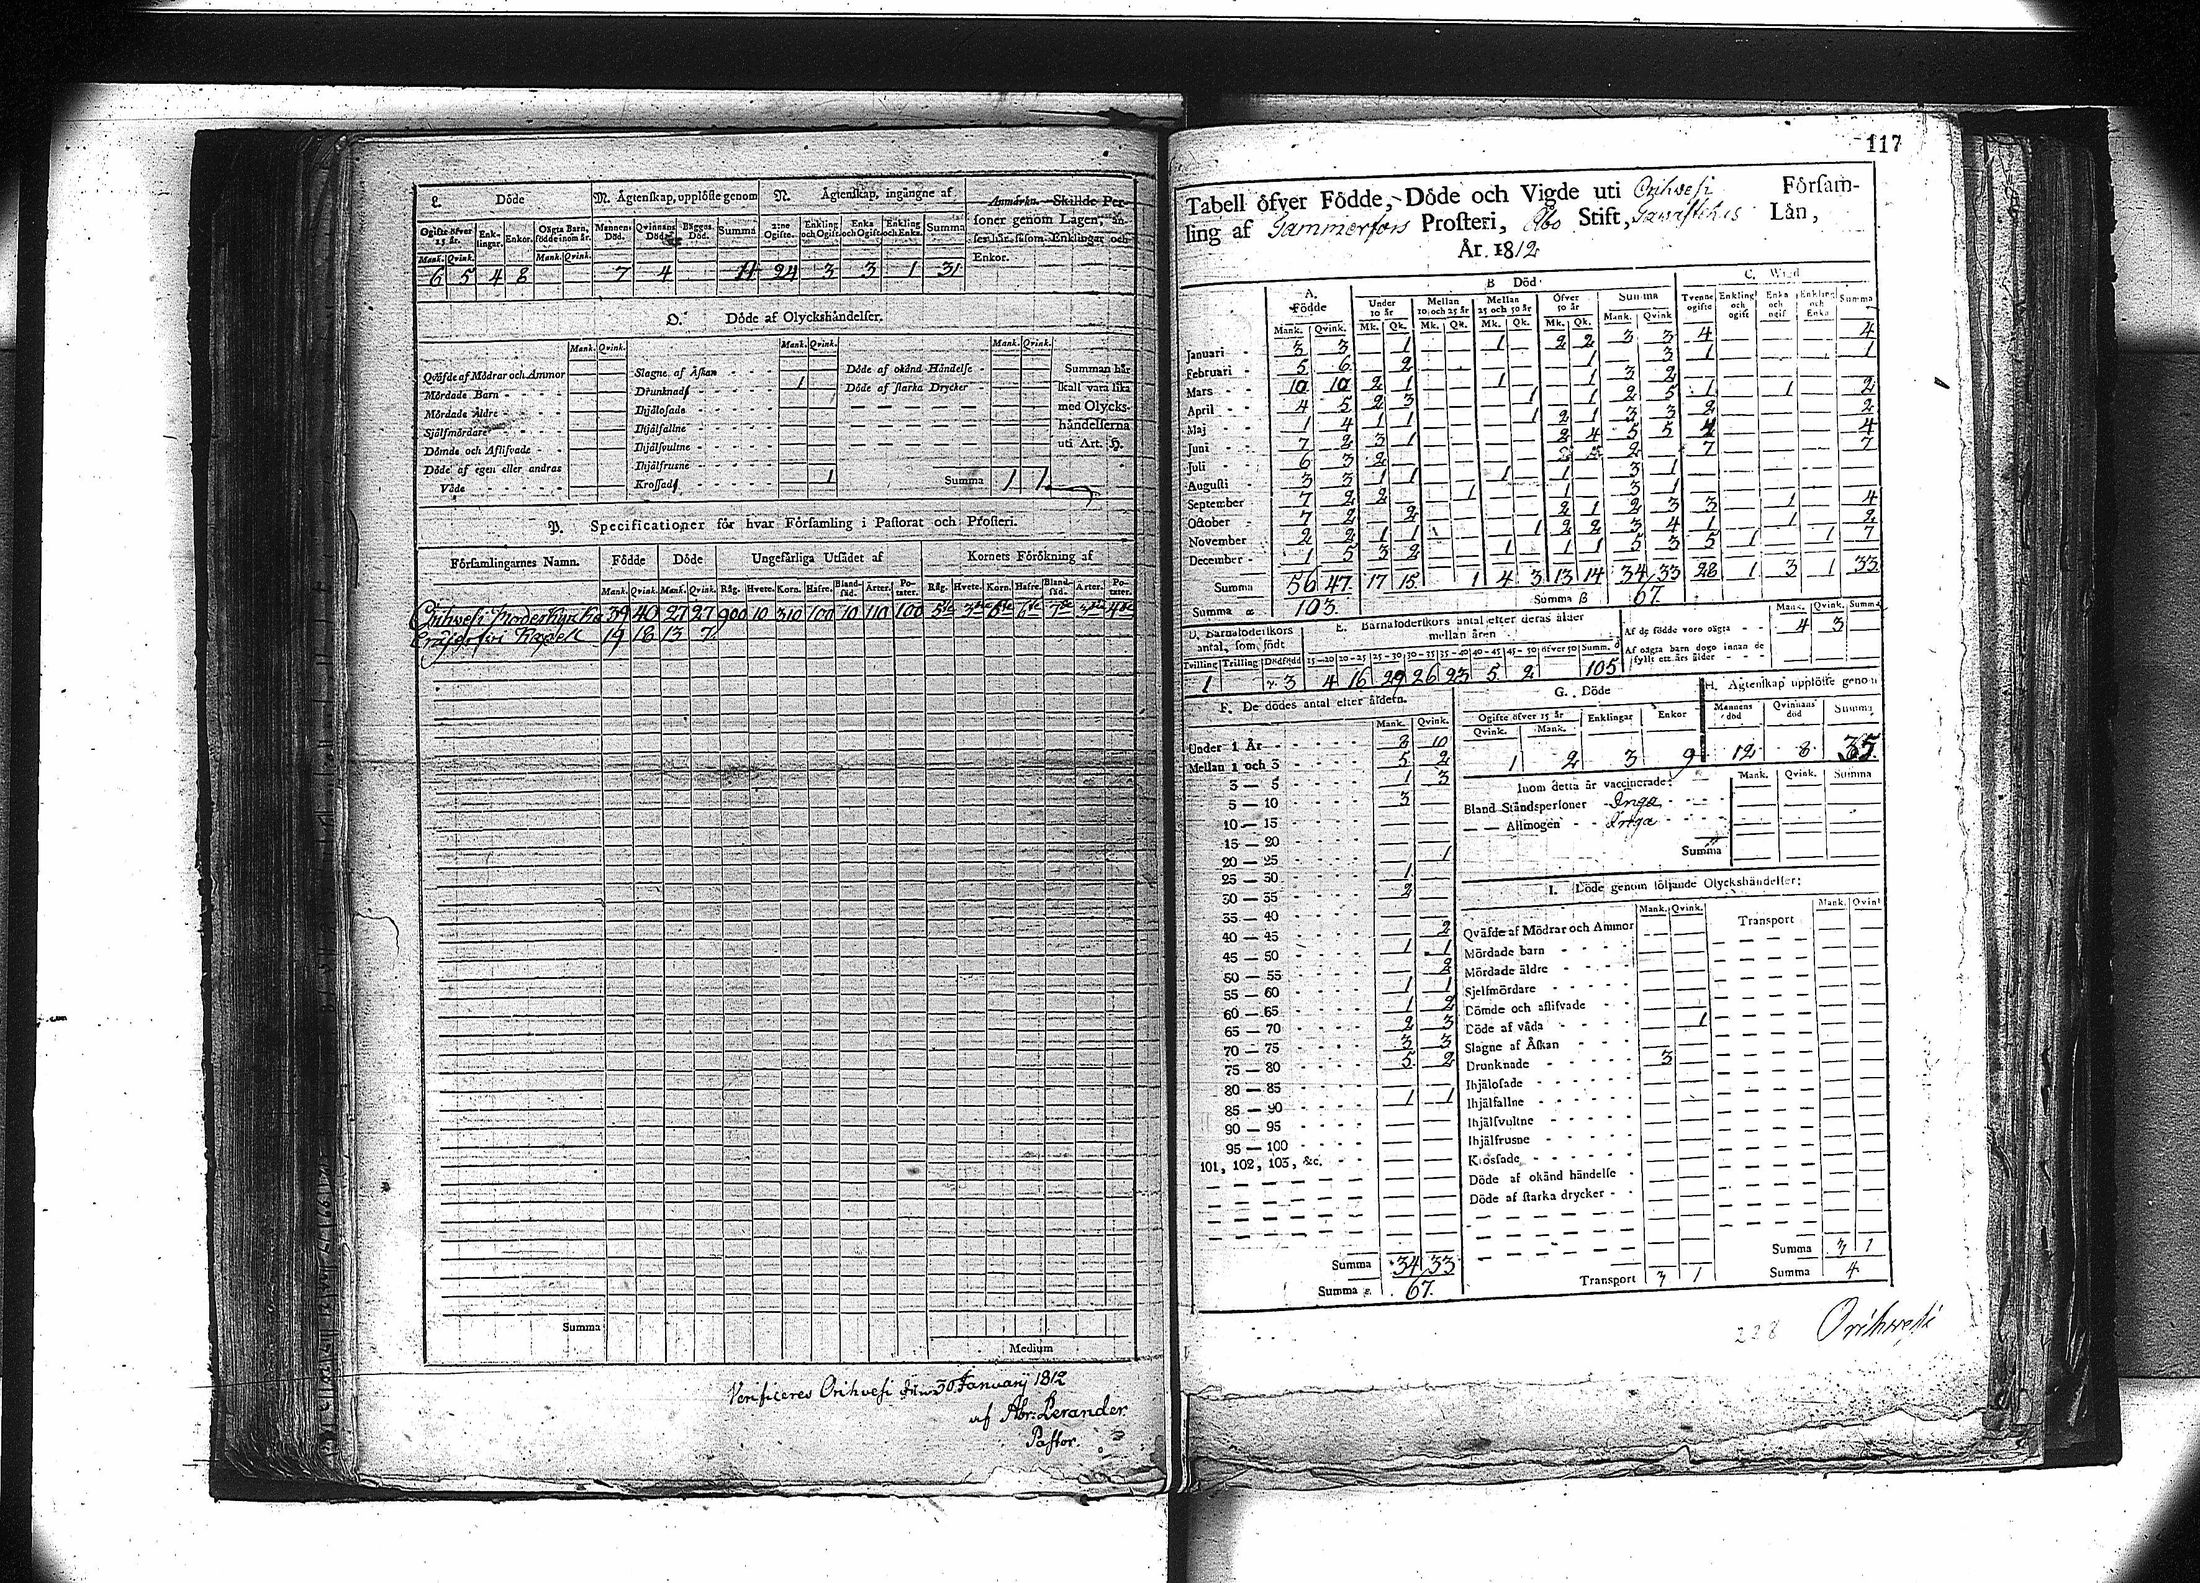 L. Döde
M. Ägtenskap, upplöste genom
N. Ägtenskap, ingångne af
Anmärkn. Skillde Per-
soner genom Lagen, an-
ses här såsom Enklingar och
Enkor.
Ogifte öfver 15 år. Enk-lingar. Enkor. Oägta Barn, födde inom år. Mannens Död. Qvinnans Död. Bägges Död. Summa 2:ne Ogifte. Enkling och Ogift. Enka och Ogift. Enkling och Enka. Summa
Mank. Qvink. Mank. Qvink.
6 5 4 8 7 4 11 24 3 3 1 31
O. Döde af Olyckshändelser.
Mank. Qvink. Mank. Qvink. Mank. Qvink.
Qväfde af Mödrar och Ammor
Mördade Barn
Mördade Äldre
Sjålfmördare
Dömde och Aflifvade
Döde af egen eller andras
Våde
Slagne af Åskan
Drunknad 1
Ihjälofade
Ihjälfallne
Ihjälfvultne
Ihjälfrusne
Krossad 1
Döde af okänd Händelse
Döde af starka Drycker
Summa 1 1
Summan här
skall vara lika
med Olycks-
händelserna
uti Art. H.
P. Specificationer för hvar Församling i Pastorat och Prosteri.
Församlingarnes Namn. Födde Döde Ungefärliga Utsädet af Kornets Förökning af
Mank. Qvink. Mank. Qvink. Råg. Hvete. Korn. Hafre. Bland-säd. Ärter. Po-tater. Råg. Hvete. Korn. Hafre. Bland-säd. Ärter. Po-tater.
Orihvesi Moderkyrka 39 40 27 27 900 10 310 100 10 110 100
Kapell 19 18 13 7
Summa
Medium
Verificeres Orihvesi den 30 Januarij 1812
af Abr: Lerander
Pastor.
117
Tabell öfver Födde, Döde och Vigde uti Orihvesi Försam-
ling af Tammerfors Prosteri, Åbo Stift, Tawastehus Län,
År 1812
A. Födde B Död C. Wigd
Under 10 år Mellan 10 och 25 år Mellan 25 och 50 år Öfver 50 år Summa Tvenne ogifte Enkling och ogift Enka och ogif Enkling och Enka Summa
Mank. Qvink. Mk. Qk. Mk. Qk. Mk. Qk. Mk. Qk. Mank. Qvink
Januari 3 3 1 1 2 2 3 3 4 4
Februari 5 6 2 1 3 1 1
Mars 10 10 2 1 1 1 3 2
April 4 5 2 3 1 1 2 5 1 1 2
Maj 1 4 1 1 1 2 1 3 3 2 2
Juni 7 2 3 1 2 4 5 5 4 4
Juli 6 3 2 2 7 7
Augusti 3 3 1 1 1 1 3 1
September 7 2 2 1 1 3 1
October 7 2 2 2 1 2 3 3 1 4
November 2 2 1 1 1 2 2 3 4 1 1 2
December 1 5 3 2 1 1 1 5 3 5 1 1 7
Summa 56 47 17 15 1 4 3 13 14 34 33 28 1 3 1 33
Summa α 103. Summa β 67.
D. Barnsföderskors antal, som födt
Tvilling Trilling Dödfödd
1 3
E. Barnaföderskors antal efter deras ålder mellan åren
15—20 20—25 25—30 30—35 35—40 40—45 45—50 öfver 50 Summ. δ
4 16 29 26 23 5 2 105
Mank. Qvink. Summa
Af de födde voro oägta 4 3
Af oägta barn dogo innan de
fyllt ett års ålder
F. De dödes antal efter åldern.
Mank. Qvink.
Under 1 År 8 10
Mellan 1 och 3 5 2
3 — 5 1 3
5 — 10 3
10 — 15
15 — 20
20 — 25 1
25 — 30 1
30 — 35 2
35 — 40
40 — 45 2
45 — 50 1 1
50 — 55 2
55 — 60 1 1
60 — 65 1 2
65 — 70 2 3
70 — 75 3 3
75 — 80 5 2
80 — 85
85 — 90 1 1
90 — 95
95 — 100
101, 102, 103, &c.
Summa 34 33
Summa ε. 67.
G. Döde
Ogifte öfver 15 år Enklingar Enkor
Qvink. Mank.
1 2 3 9
H. Ägtenskap upplöste genom
Mannens död Qvinnans död Summa
12 8 35
Inom detta år vaccinerade: Mank. Qvink. Summa
Bland Ståndspersoner Inga
— — Allmogen Inga
Summa
I. Döde genom följande Olyckshändelser:
Mank. Qvink. Mank. Qvink
Transport
Qväfde af Mödrar och Ammor
Mördade barn
Mördade äldre
Sjelfmördare
Dömde och aflifvade
Döde af våda 1
Slagne af Åskan
Drunknade 3
Ihjälofade
Ihjälfallne
Ihjälfvultne
Ihjälfrusne
Krossade
Döde af okänd händelse
Döde af starka drycker
Summa 3 1
Transport 3 1 Summa 4
228 Orihvesi